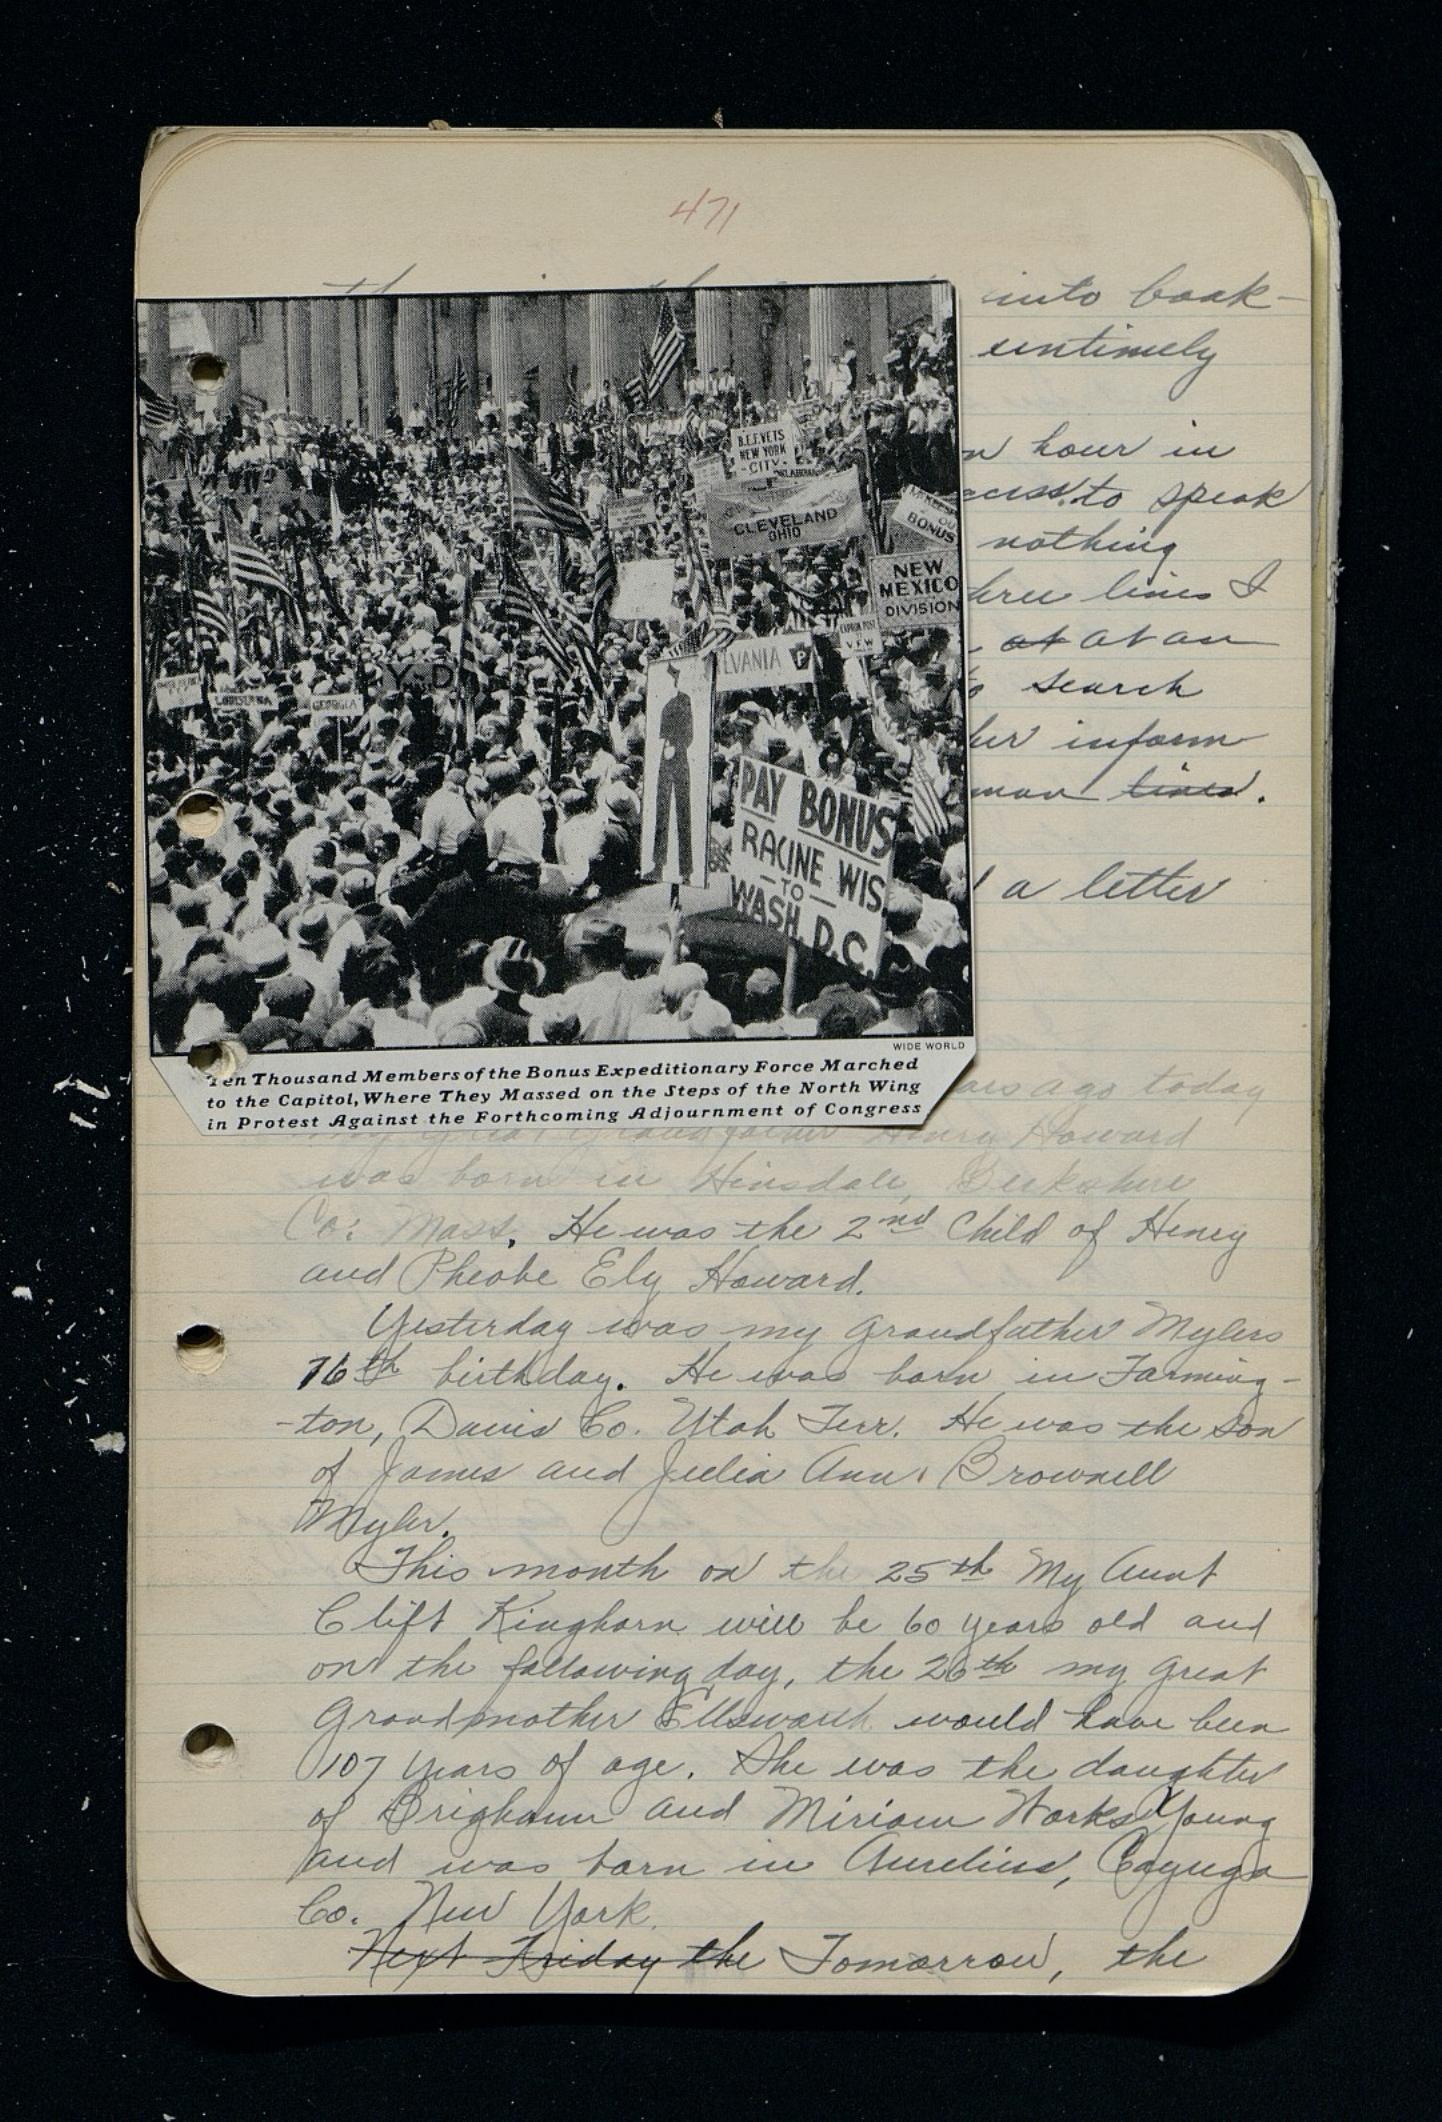 471
into book-
sentimely
hour in
to speak
nothing
lines I
at at an
search
inform
lines.
a letter
B.E.F. VETS
NEW YORK
-CITY-
CLEVELAND
OHIO
BONUS
NEW
MEXICO
DIVISION
ALL ST
V.F.W
LVANIA P
Y-D
LOUISIANA
GEORGIA
PAY BONUS
RACINE WIS
-TO-
WASH. D.C.
WIDE WORLD
Ten Thousand Members of the Bonus Expeditionary Force Marched
to the Capitol, Where They Massed on the Steps of the North Wing
in Protest Against the Forthcoming Adjournment of Congress
ago today
my great grandfather Henry Howard
was born in Hinsdale, Berkshire
Co: Mass. He was the 2nd Child of Henry
and Pheobe Ely Howard.
Yesterday was my grandfather Mylers
76th birthday. He was born in Farming-
-ton, Davis Co. Utah Terr. He was the son
of James and Julia Ann Brownell
Myler.
This month on the 25th My Aunt
Clift Kinghorn will be 60 years old and
on the following day, the 26th my great
Grandmother Ellsworth would have been
107 years of age. She was the daughter
of Brigham and Miriam Works Young
and was born in Aurelius, Cayuga
Co. New York.
Next Friday the Tomorrow, the